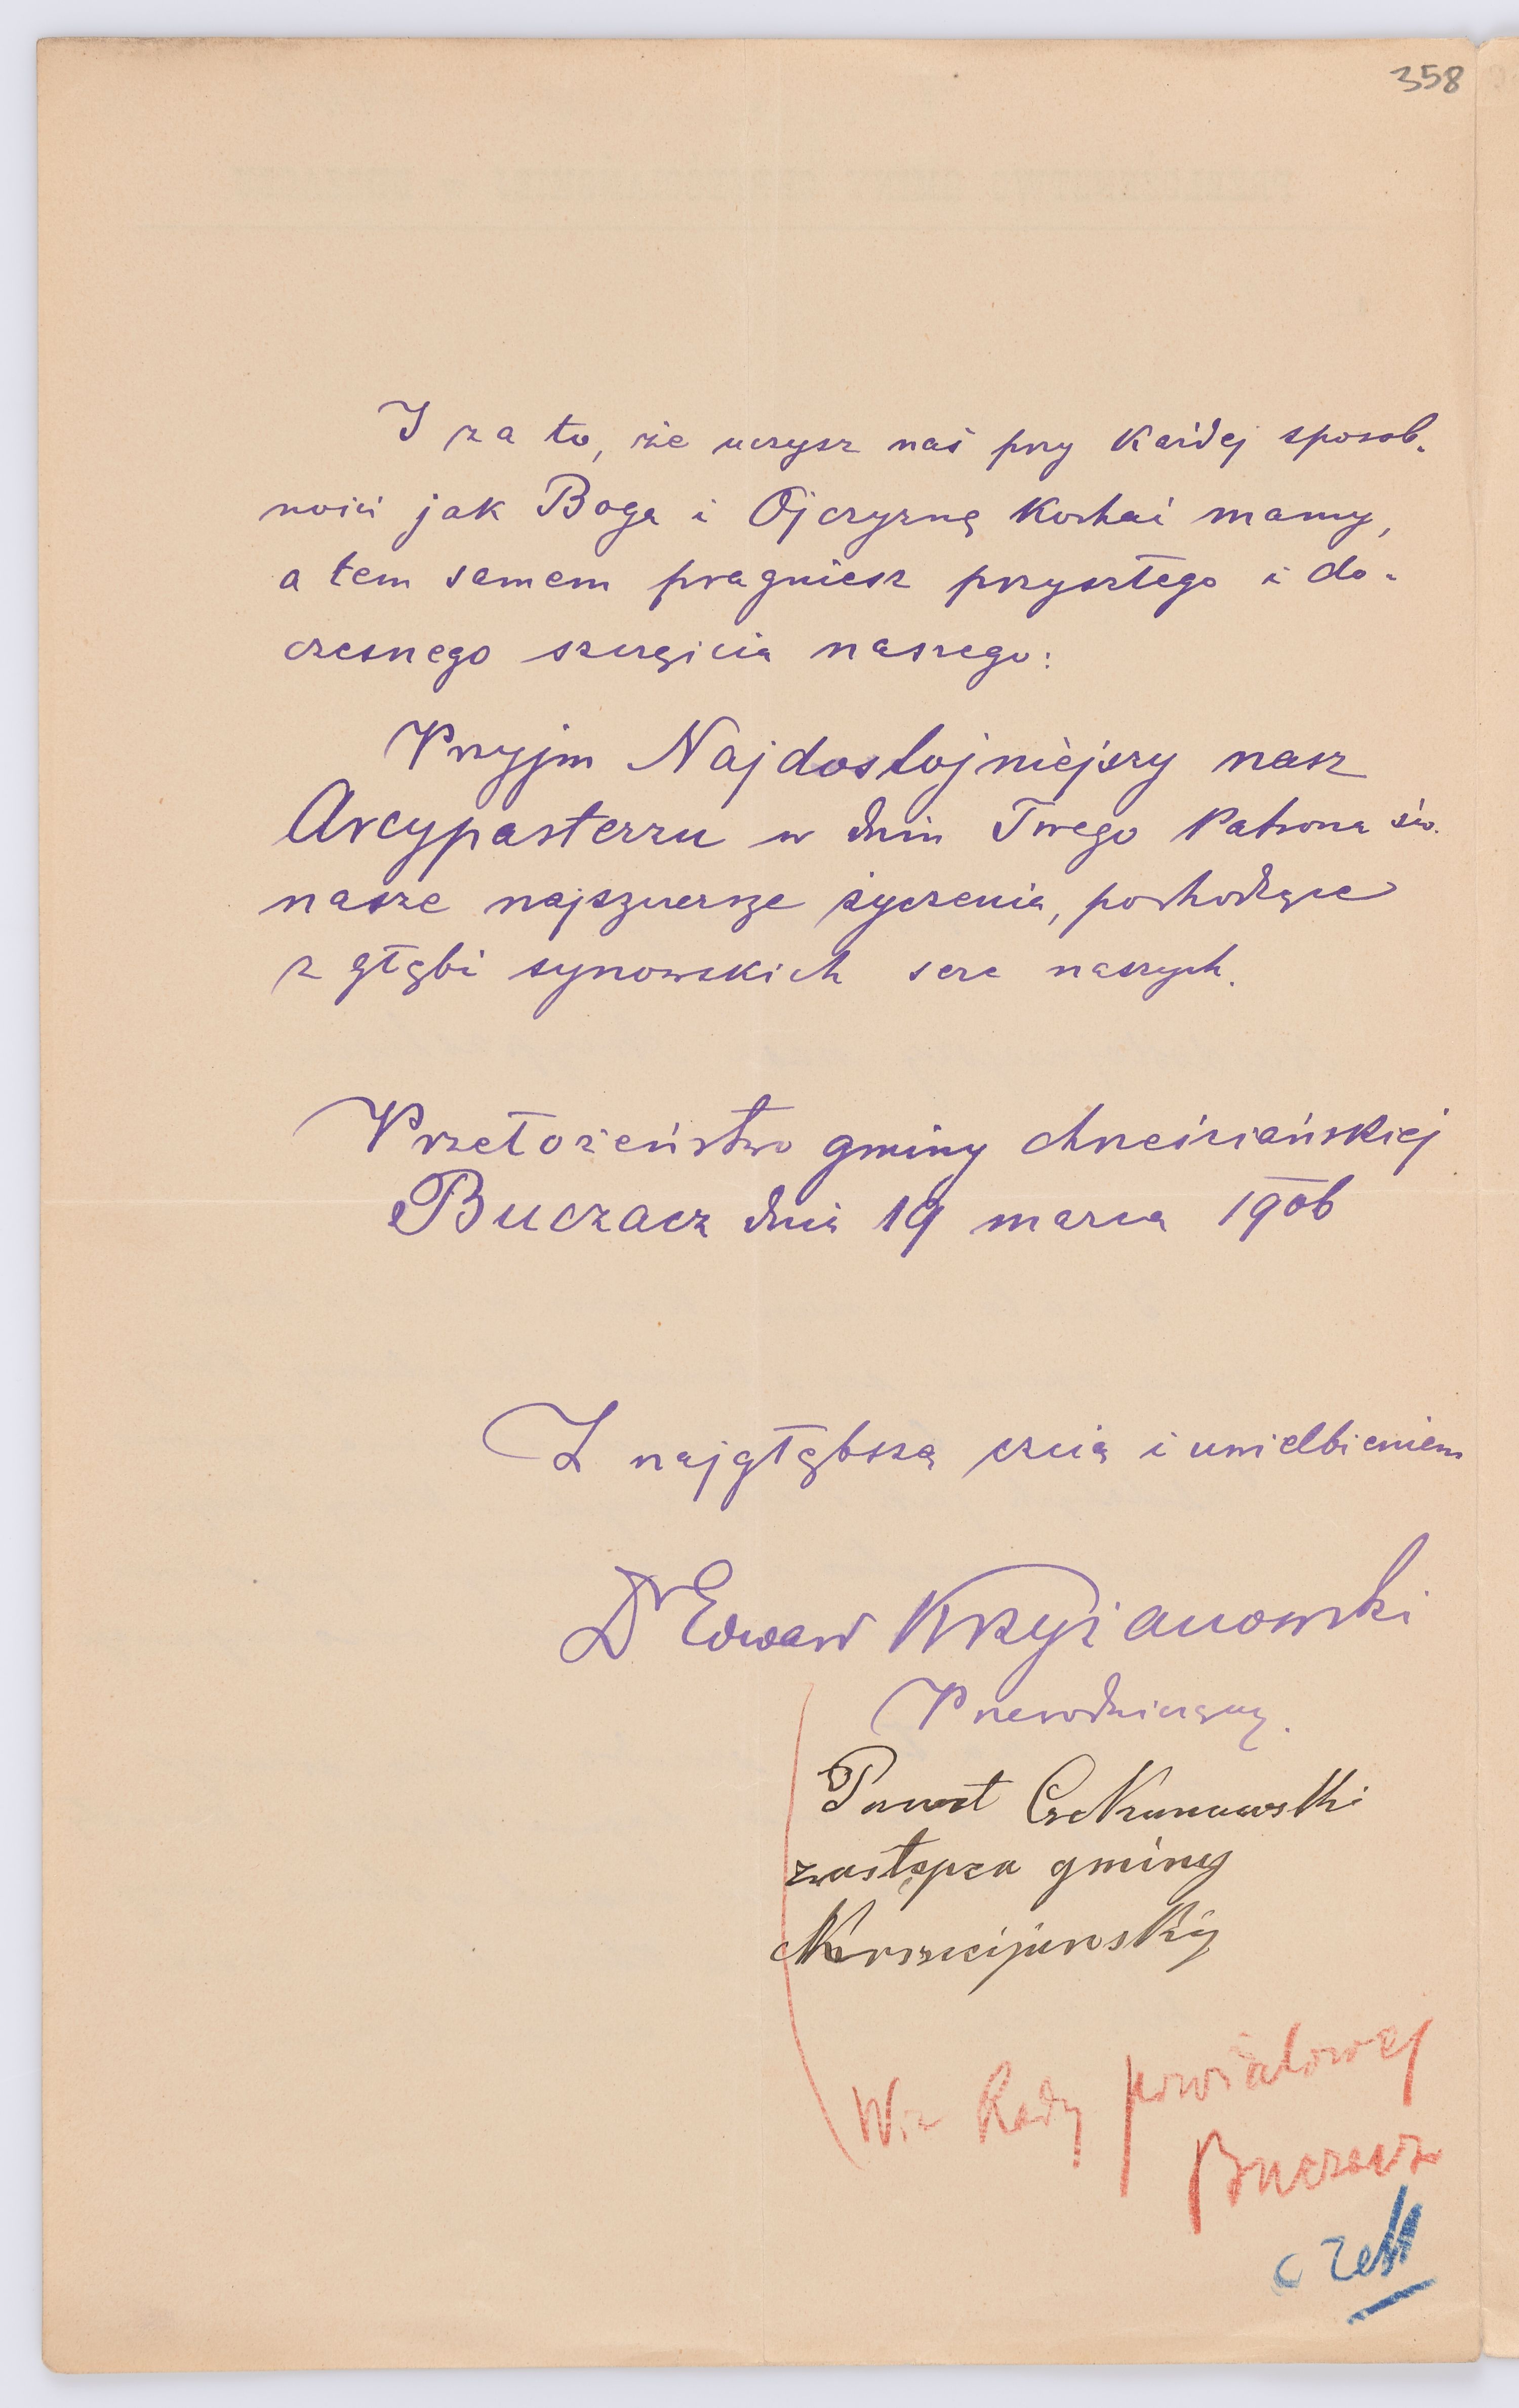 358
I za to, że uczysz nas przy każdej sposob-
ności jak Boga i Ojczyznę kochać mamy,
a tem samem pragniesz przyszłego i do-
czesnego szczęścia naszego:
Przyjm Najdostojniejszy nasz
Arcypasterzu w dniu Twego Patrona św.
nasze najszczersze życzenia, pochodzące
z głębi synowskich serc naszych.
Przełożeństwo gminy chrześciańskiej
Buczacz dnia 19 marca 1906
Z najgłębszą czcią i uwielbieniem
Dr Edward Krzyżanowski
Przewodniczący.
Paweł Czekanowski
zastępca gminy
Krzscijanskij
W. Rady powiatowej
Buczacz